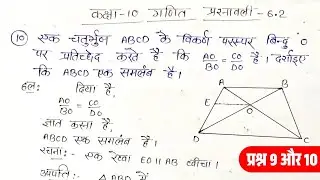 कक्षा-10 गणित प्रश्नावली-6.2
(10) एक चतुर्भुज ABCD के विकर्ण परस्पर बिन्दु O
पर प्रतिच्छेद करते हैं कि AO/BO = CO/DO है। दर्शाइए
कि ABCD एक समलंब है।
हल: दिया है
AO/BO = CO/DO
ज्ञात करना है
ABCD एक समलंब है।
रचना: - एक रेखा EO||AB खींचा।
उपपत्ति: △ABD में
A B
E O
D C
प्रश्न 9 और 10